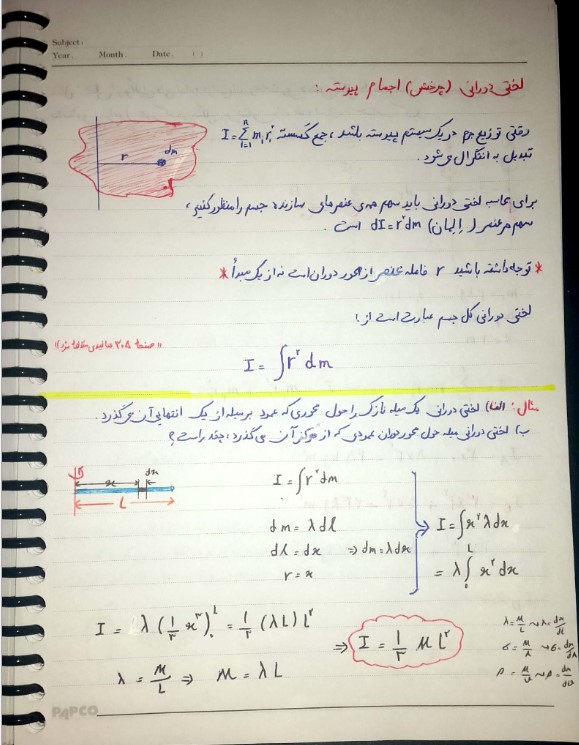 Subject:
Year. Month. Date. ( )
لختی دورانی (چرخشی) اجسام پیوسته :
وقتی توزیع جرم در یک سیستم پیوسته باشد ، جمع گسسته I = Σ mᵢ rᵢ² n i=1
تبدیل به انتگرال می شود .
r dm
برای محاسبه لختی دورانی باید سهم همه ی عنصرهای سازنده جسم را منظور کنیم ،
سهم هر عنصر (المان) dI = r²dm است .
* توجه داشته باشید r فاصله عنصر از محور دوران است نه از یک مبدأ *
لختی دورانی کل جسم عبارت است از :
صفحه ۳۰۵ هالیدی
I = ∫ r² dm
مثال : الف) لختی دورانی یک میله نازک را حول محوری که عمود بر میله از یک انتهایی آن می گذرد .
ب) لختی دورانی میله حول محور دوران عمودی که از مرکز آن می گذرد ، چقدر است ؟
x dx
L
I = ∫ r² dm
dm = λ dl
dl = dx ⇒ dm = λ dx
r = x
⇒ I = ∫ x² λ dx
= λ ∫₀ᴸ x² dx
I = λ (1/۳ x³)₀ᴸ = 1/۳ (λL) L²
⇒ I = 1/۳ M L²
λ = M/L ⇒ M = λ L
λ = M/L ~> λ = dm/dl
σ = M/A ~> σ = dm/dA
ρ = M/V ~> ρ = dm/dV
PAPCO